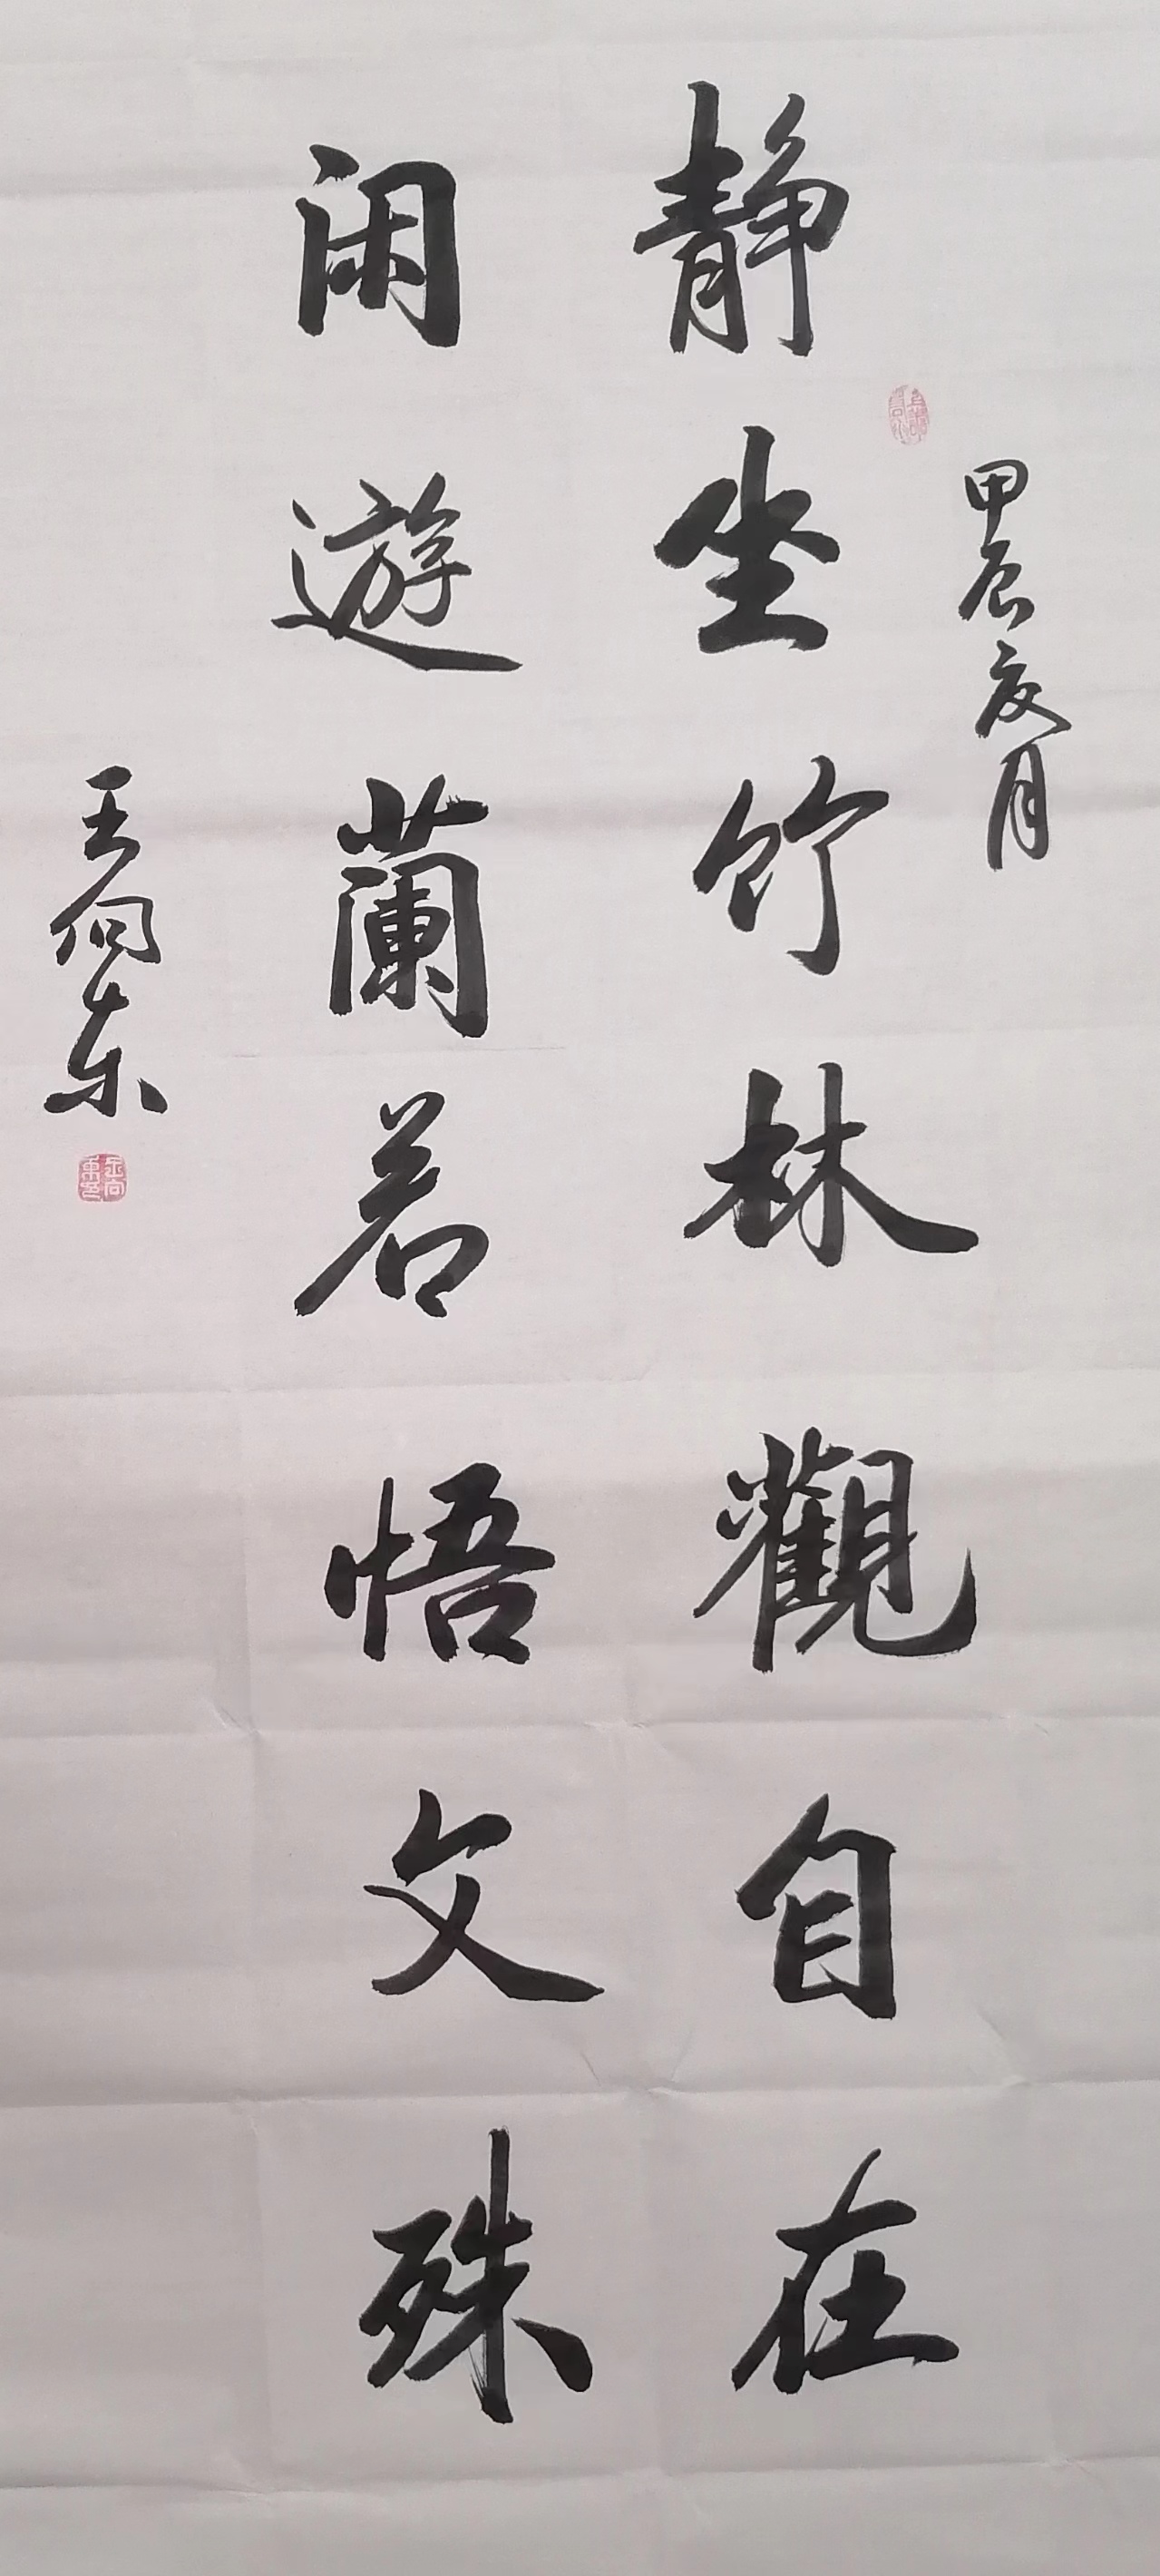 甲辰夏月
静坐竹林觀自在
闲遊蘭若悟文殊
王向东